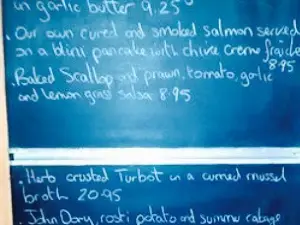 in garlic butter 9.25
• Our own cured and smoked salmon served
on a blini pancake with chive creme fraiche
8.95
• Baked Scallop and prawn, tomato, garlic
and lemon grass salsa 8.95
• Herb crusted Turbot on a curried mussel
broth 20.95
• John Dory, rosti potato and summer cabage